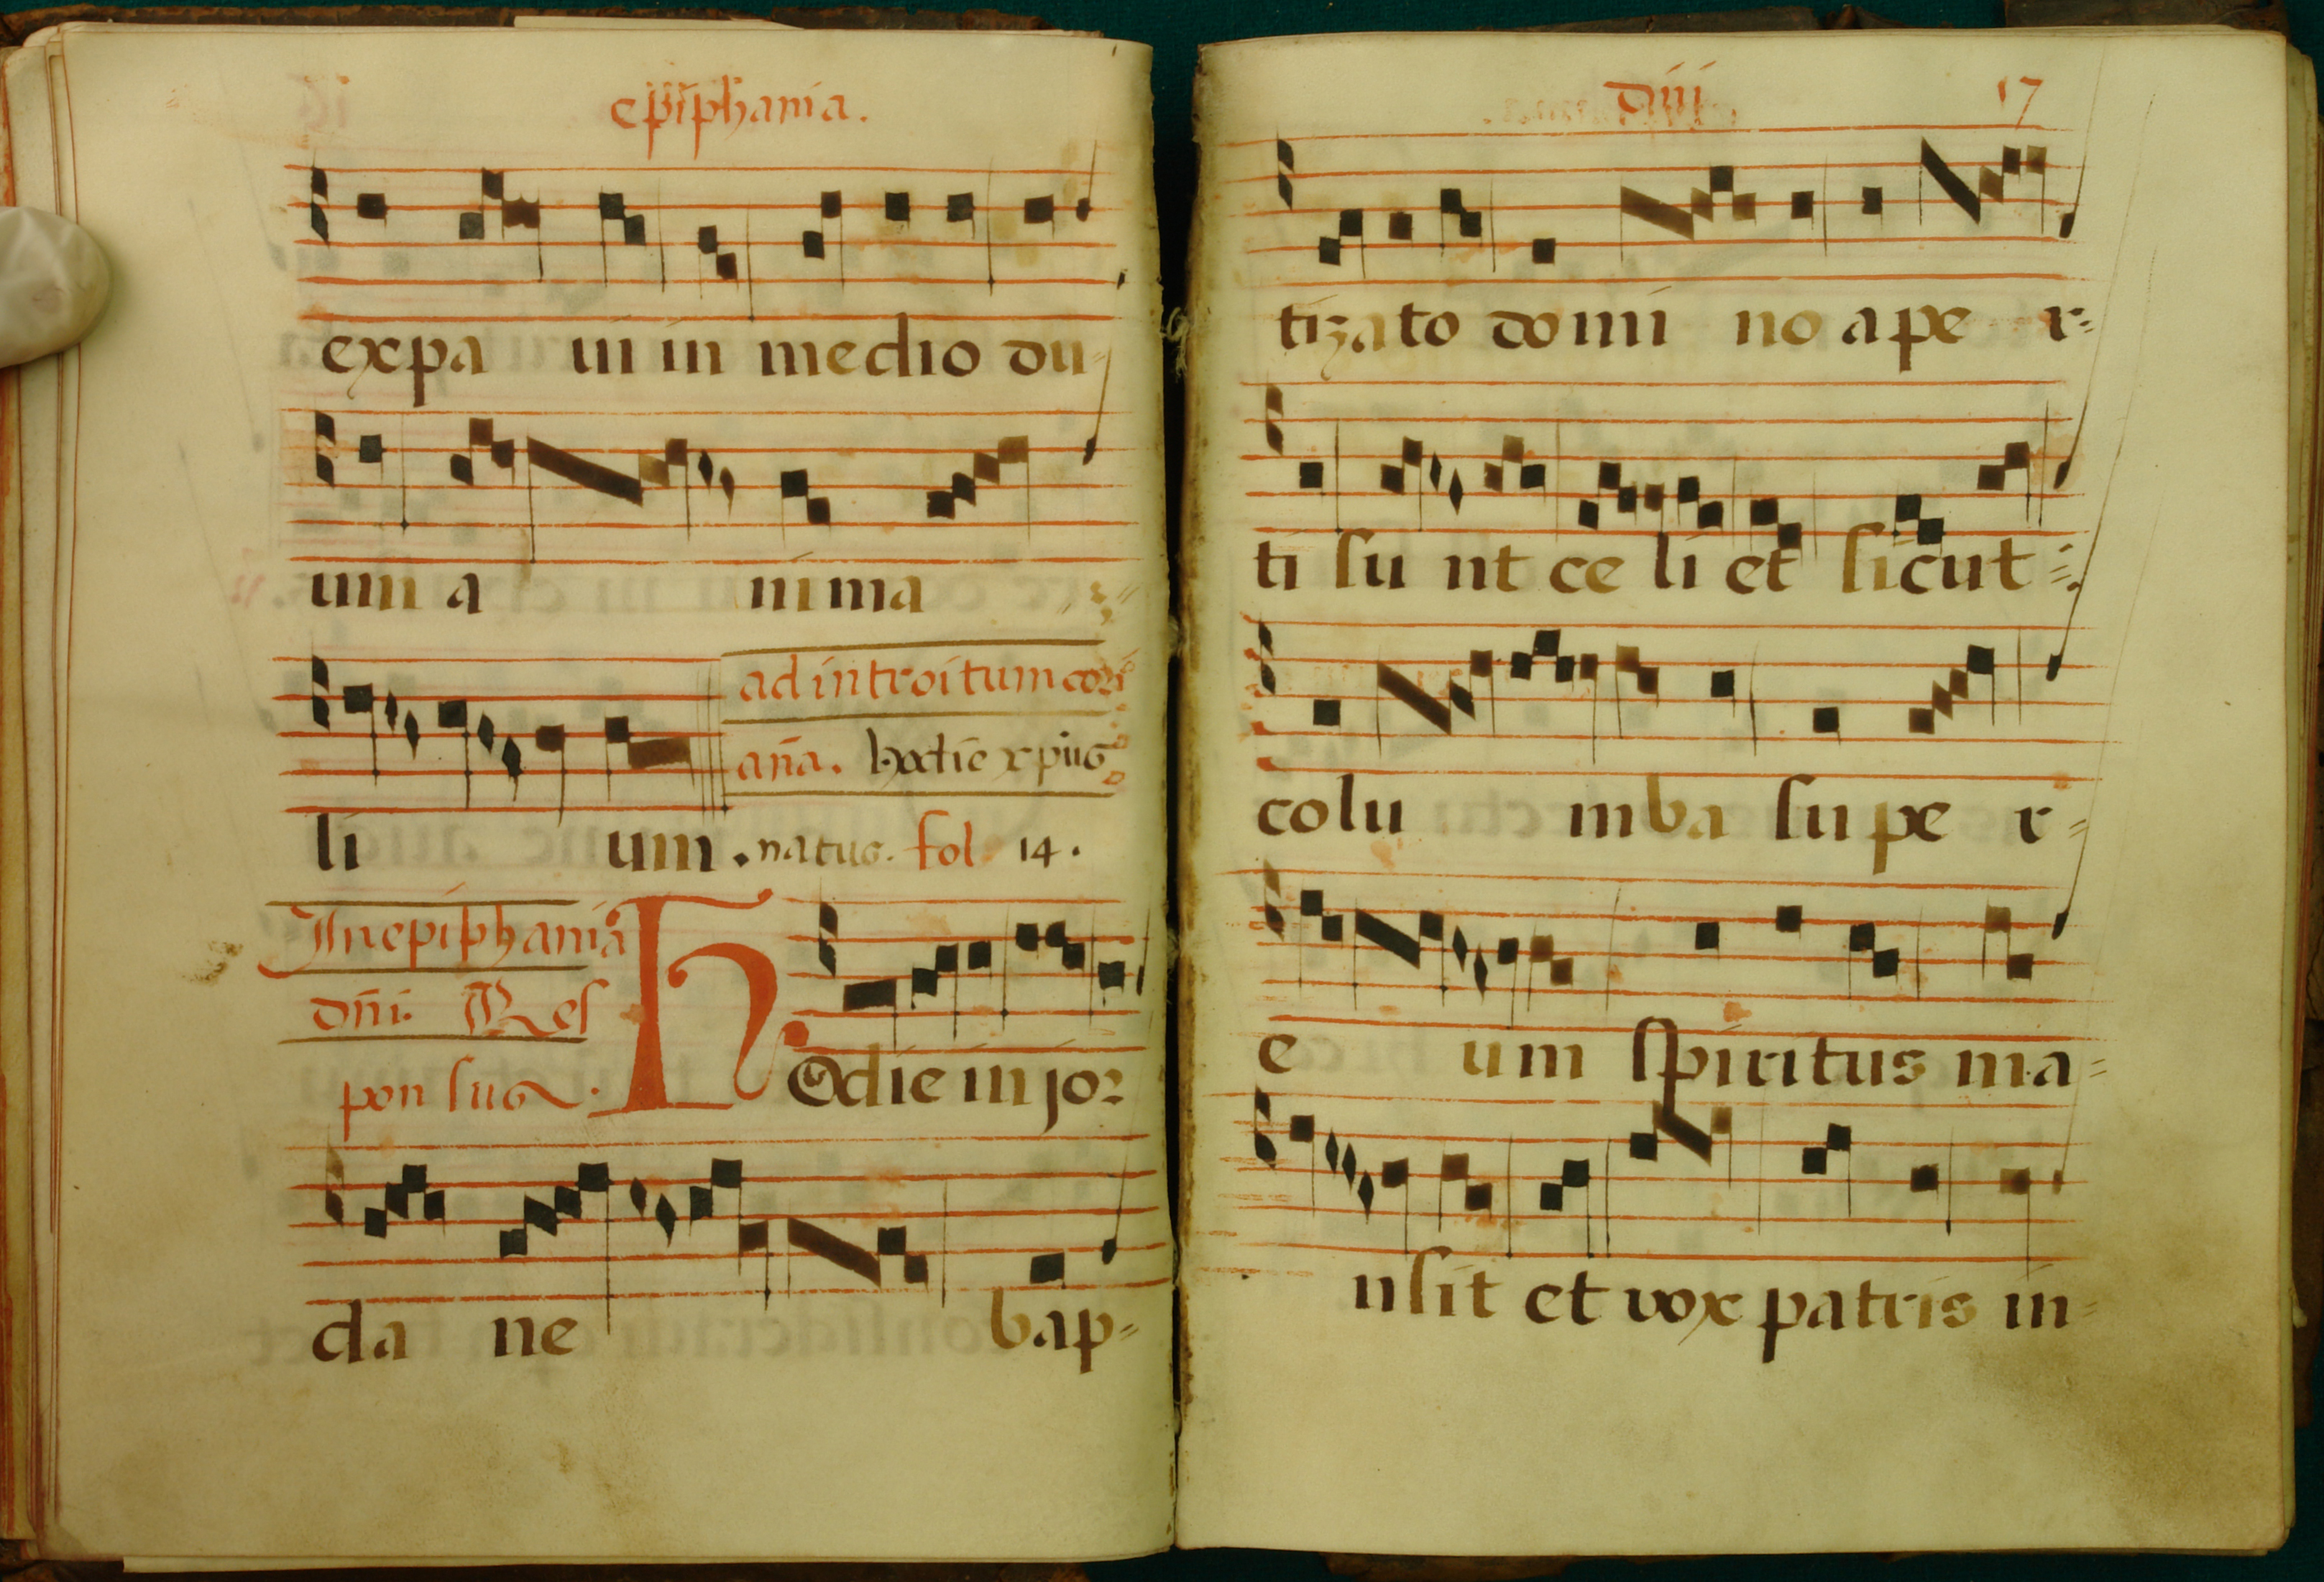 epiphania.
expa ui in medio du-
um a nima
ad introitum cori
aña. hodie xp̄us
li um. natus. fol 14.
In epiphania
dñi. Res
ponsus.
Hodie in jor
da ne bap-
dñi 17
tizato domi no a pe r-
ti su nt ce li et sicut
colu mba supe r-
e um spiritus ma-
nsit et vox patris in-